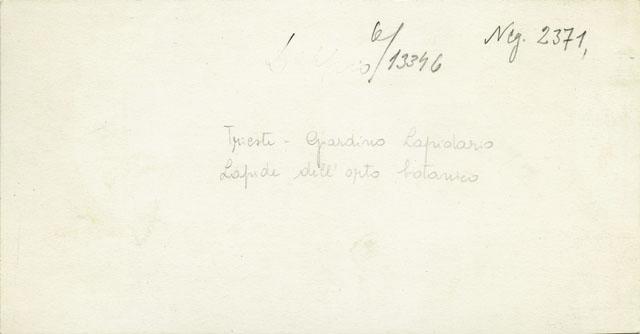 6/13346
Neg. 2371,
Trieste - Giardino Lapidario
Lapide dell'orto botanico